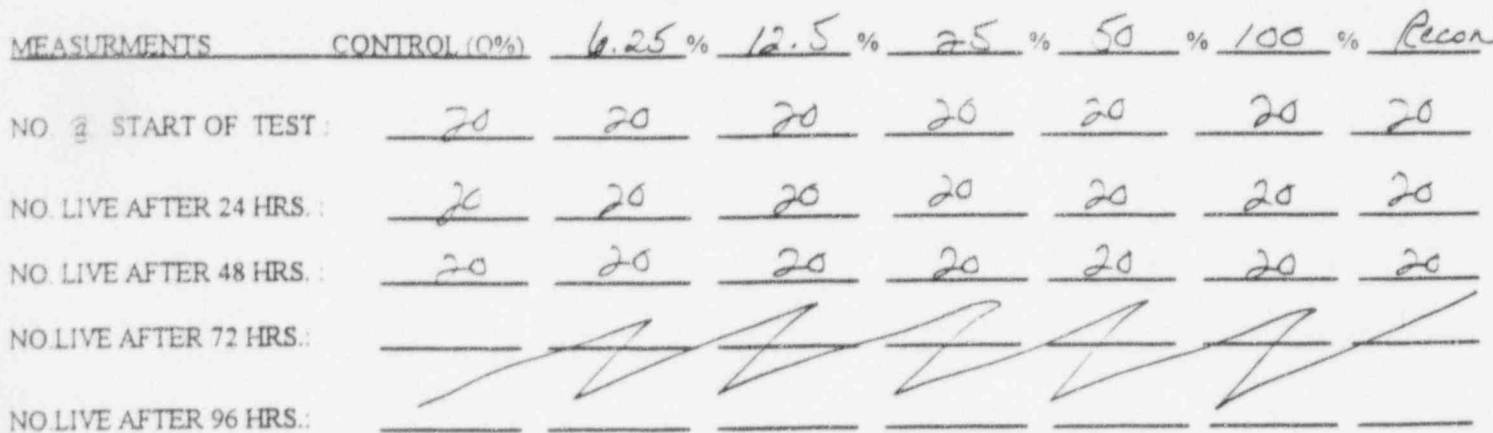 MEASURMENTS CONTROL (0%) 6.25 % 12.5 % 25 % 50 % 100 % Recon
NO. @ START OF TEST : 20 20 20 20 20 20 20
NO. LIVE AFTER 24 HRS. : 20 20 20 20 20 20 20
NO. LIVE AFTER 48 HRS. : 20 20 20 20 20 20 20
NO.LIVE AFTER 72 HRS.:
NO.LIVE AFTER 96 HRS.: